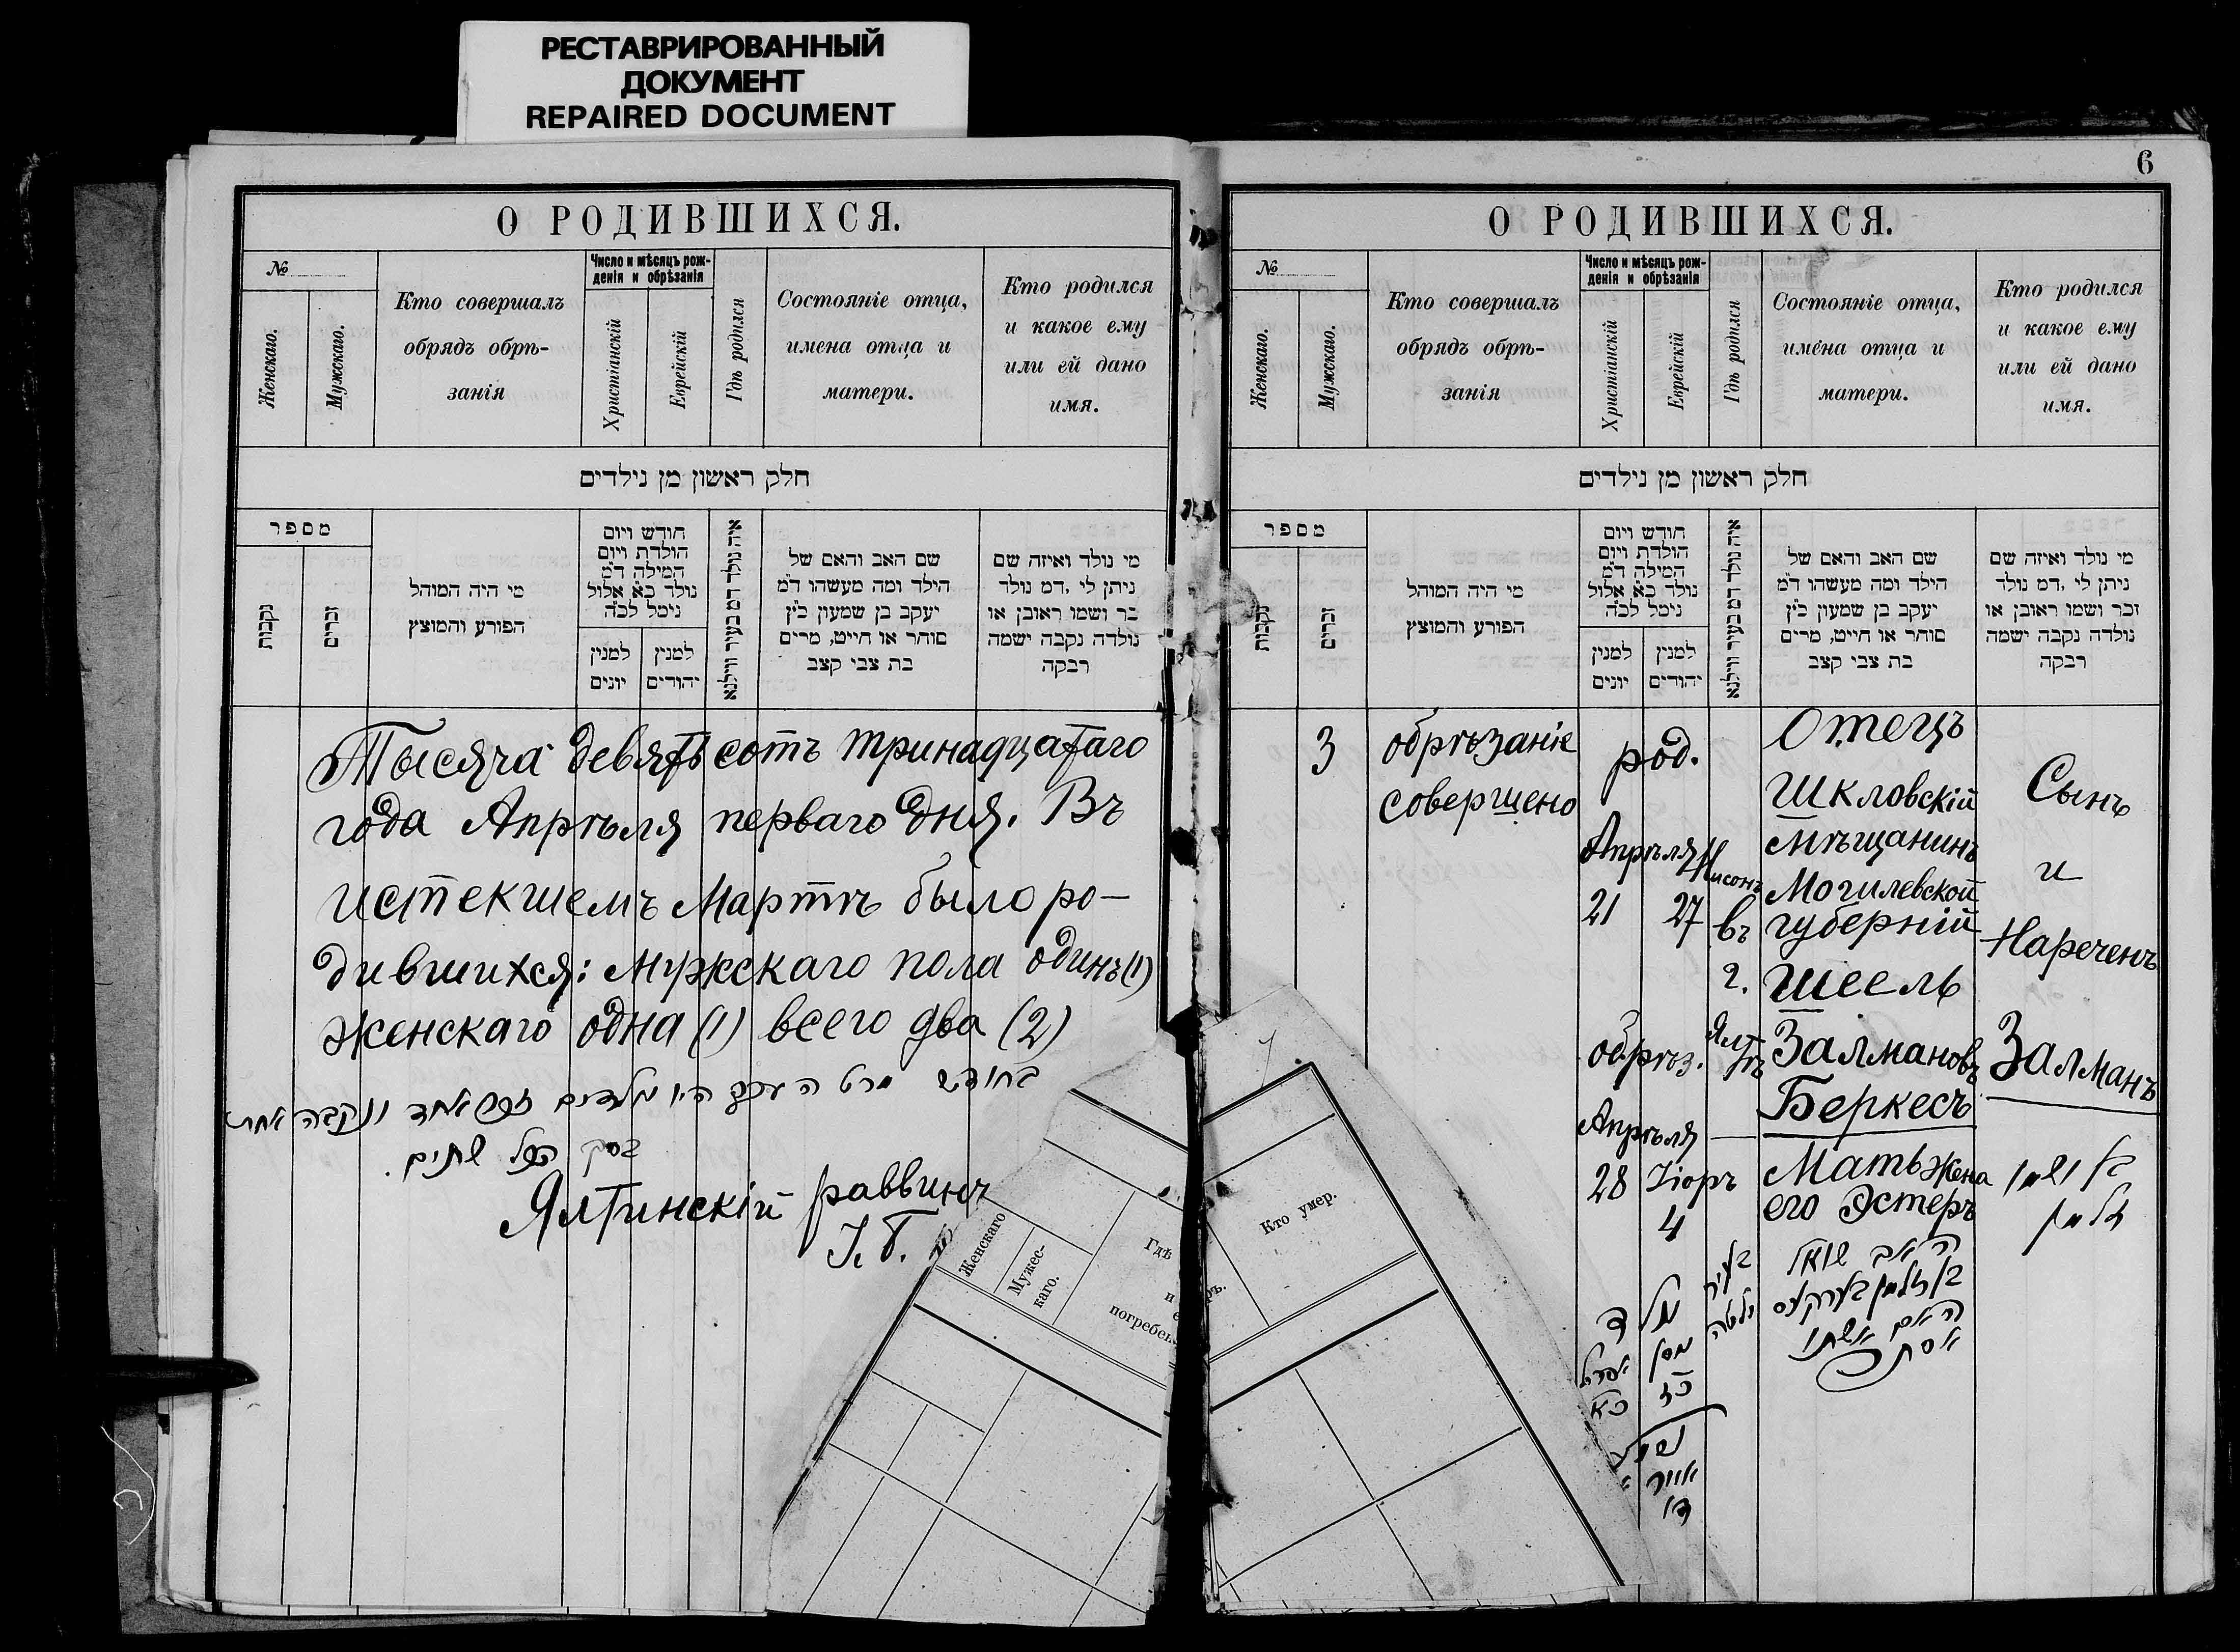 РЕСТАВРИРОВАННЫЙ
ДОКУМЕНТ
REPAIRED DOCUMENT
О РОДИВШИХСЯ.
№
Женскаго.
Мужскаго.
Кто совершалъ
обрядъ обрѣ-
занія
Число и мѣсяцъ рож-
денія и обрѣзанія
Христіанскій
Еврейскій
Гдѣ родился
Состояніе отца,
имена отца и
матери.
Кто родился
и какое ему
или ей дано
имя.
חלק ראשון מן נילדים
מספר
נקבות
זכרים
מי היה המוהל
הפורע והמוצץ
חודש ויום
הולדת ויום
המילה ד״מ
נולד כ״א אלול
נימל לכ״ה
למנין
יונים
למנין
יהודים
איה נולד דמ בעיר ווילנא
שם האב והאם של
הילד ומה מעשהו ד״מ
יעקב בן שמעון כ״ץ
סוחר או חייט, מרים
בת צבי קצב
מי נולד ואיזה שם
ניתן לי ,דמ נולד
כר ושמו ראובן או
נולדה נקבה ישמה
רבקה
Тысяча девятьсотъ тринадцатаго
года Апрѣля перваго дня. Въ
истекшемъ Мартѣ было ро-
дившихся: Мужскаго пола одинъ (1)
женскаго одна (1) всего два (2)
בחודש מרט היו נולדים זכר אחד ונקבה אחת
בסך הכל שתים.
Ялтинскій раввинъ
Женскаго
Мужес-
каго.
Гдѣ
и
погребен
6
О РОДИВШИХСЯ.
№
Женскаго.
Мужскаго.
Кто совершалъ
обрядъ обрѣ-
занія
Число и мѣсяцъ рож-
денія и обрѣзанія
Христіанскій
Еврейскій
Гдѣ родился
Состояніе отца,
имена отца и
матери.
Кто родился
и какое ему
или ей дано
имя.
חלק ראשון מן נילדים
מספר
נקבות
זכרים
מי היה המוהל
הפורע והמוצץ
חודש ויום
הולדת ויום
המילה ד״מ
נולד כ״א אלול
נימל לכ״ה
למנין
יונים
למנין
יהודים
איה נולד דמ בעיר ווילנא
שם האב והאם של
הילד ומה מעשהו ד״מ
יעקב בן שמעון כ״ץ
סוחר או חייט, מרים
בת צבי קצב
מי נולד ואיזה שם
ניתן לי ,דמ נולד
זכר ושמו ראובן או
נולדה נקבה ישמה
רבקה
3
обрѣзаніе
совершено
род.
Апрѣля Нисонъ
21 27
обрѣз.
Апрѣля
28 Іюръ
4
въ
г.
Ялтѣ
Отецъ
Шкловскій
Мѣщанинъ
Могилевской
губерній
Шеель
Залмановъ
Беркесъ
Мать жена
его Эстеръ
Сынъ
и
Нареченъ
Залманъ
בן ושמו
זלמן
האב
בן זלמן בערקעס
האם אשתו
אסתר
בעיר
יאלטה
נולד
אפריל ניסן
כא כז
אייר
ד׳
Кто умер.
ръ.